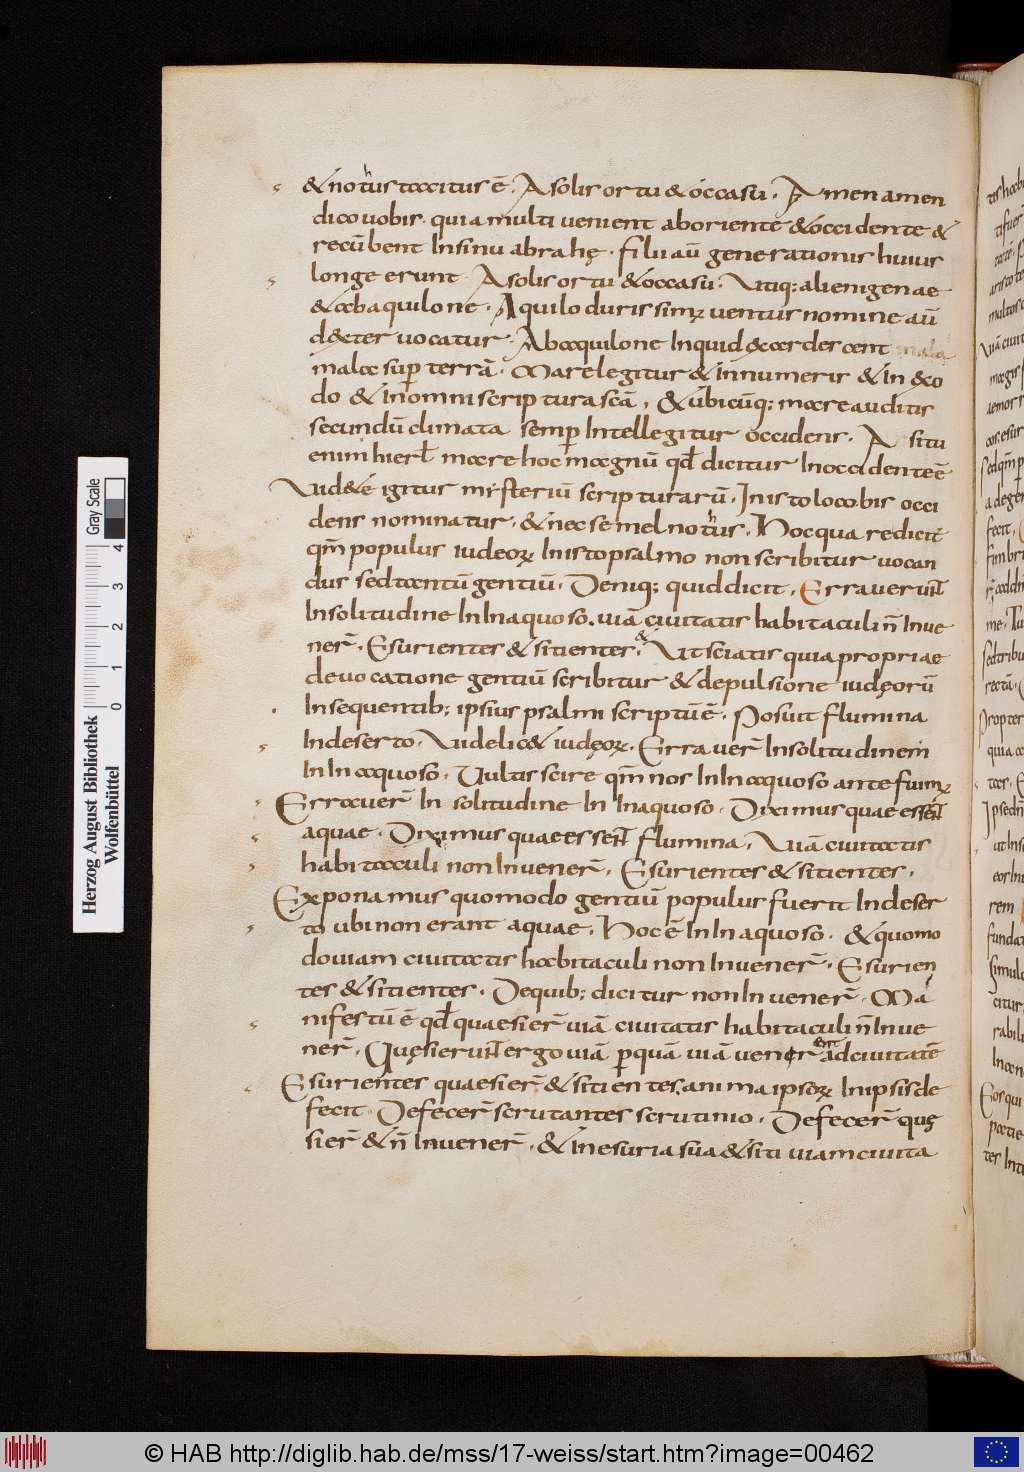 & no thus tacitus ē. A solis ortu & occasu. Amen amen
dico uobis. quia multi uenient ab oriente & occidente &
recūbent In sinu abrahę. filii aū generationis huius
longe erunt. A solis ortu & occasu. Utiq; alienigenae
& ab aquilone. Aquilo durissim; uentus nomine aū
dexter uocatur. Ab aquilone Inquid exardercent mala
mala sup terrā. Mare legitur & in numeris & in exo
do & in omni scriptura scā, & ubicūq; mare auditis
secundū climata semp Intellegitur occidens. A situ
enim hierł mare hoc magnū qđ dicitur In occidente ē
Uid&e igitur misteriū scripturarū. In isto loco bis occi
dens nominatur. & nec semel nothus. Hoc quare dicit
qm̄ populus iudeoꝝ In isto psalmo non scribitur uocan
dus sed tantū gentiū. Deniq; quid dicit. Errauerunt
In solitudine In Inaquoso. uiā ciuitatis habitaculi n̄ Inue
ner̄. Esurientes & sitientes. & Ut sciatis quia propriae
de uocatione gentiū scribitur & depulsione iudęorū
In sequentib; ipsius psalmi scriptū ē. Posuit flumina
In deserto. Uidelic& iudęoꝝ. Errauer̄ In solitudinem
In Inaquoso. Uultis scire qm̄ nos In Inaquoso ante fuim;
Errauer̄ In solitudine In Inaquoso. Diximus quae essent
aquae. Diximus quae essent flumina. Uiā ciuitatis
habitaculi non Inuener̄. Esurientes & sitientes.
Exponamus quomodo gentiū populus fuerit In deser
to ubi non erant aquae. Hoc ē In Inaquoso. & quomo
do uiam ciuitatis habitaculi non Inuener̄. Esurien
tes & sitientes. De quib; dicitur non Inuener̄. Ma
nifestū ē qđ quaesier̄ uiā ciuitatis habitaculi n̄ Inue
ner̄. Quęsierunt ergo uiā p quā uiā uenirent ad ciuitatē
Esurientes quaesier̄ & sitientes. anima ipsoꝝ In ipsis de
fecit. Defecer̄ scrutantes scrutinio. Defecer̄ quę
sier̄ & n̄ Inuener̄. & in esuria sua & siti uiam ciuita
Herzog August Bibliothek
Wolfenbüttel
0 1 2 3 4
Gray Scale
© HAB http://diglib.hab.de/mss/17-weiss/start.htm?image=00462